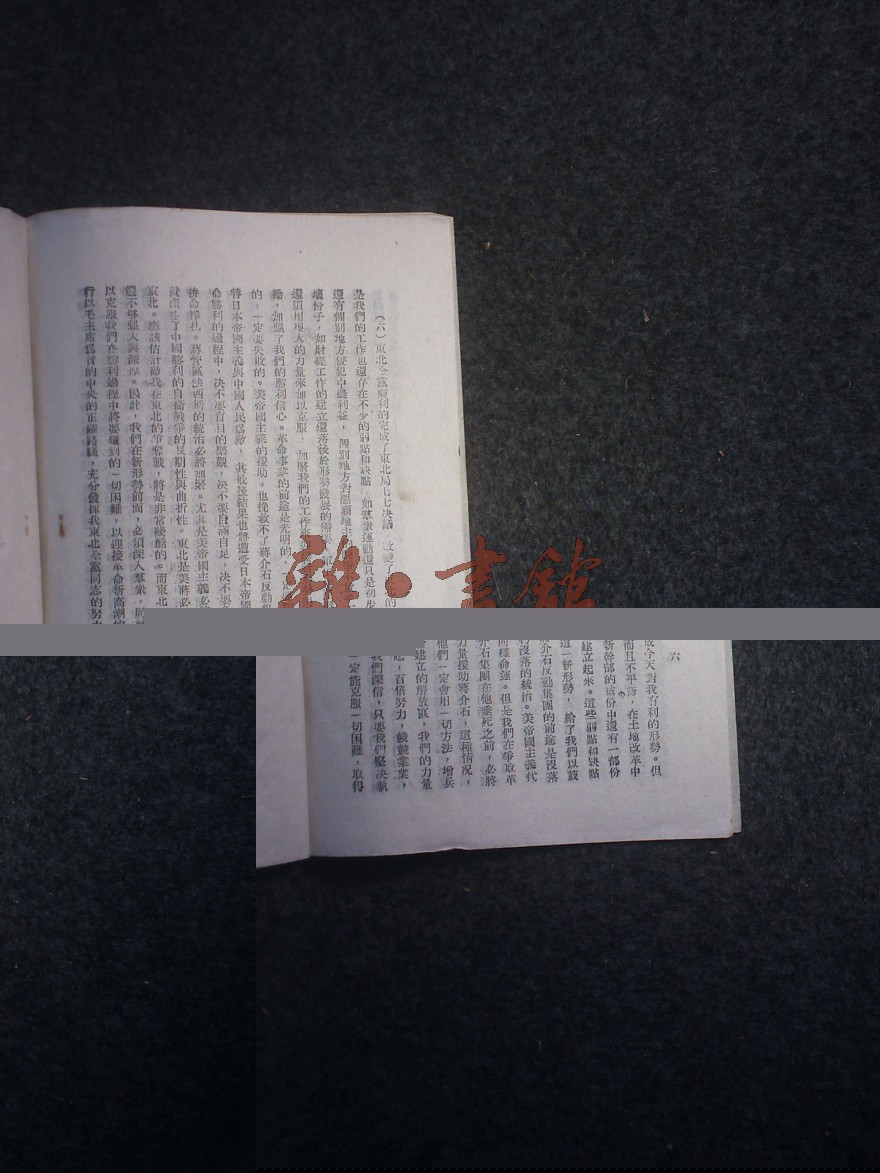 (六)東北全黨勝利的完成了東北局七七決議
是我們的工作也還存在不少的弱點和缺點,如羣衆運動還只是初步
還有個別地方侵犯中農利益,個別地方對惡霸地主
壞份子,如財經工作的建立還落後於形勢發展的需要
還須用更大的力量來加以克服,加緊我們的工作
勵,加强了我們的勝利信心。革命事業的前途是光明的
的,一定要失敗的。美帝國主義的援助,也挽救不了蔣介石反動
替日本帝國主義與中國人民爲敵,其最後結果也將遭受日本帝國
命勝利的過程中,決不要盲目的樂觀,決不要自滿自足,決不要
拚命掙扎。蔣管區法西斯的統治必將加緊。尤其是美帝國主義必
就產生了中國勝利的自衛戰爭的長期性與曲折性。東北是美蔣必
東北。應該估計敵我在東北的爭奪戰,將是非常殘酷的。而東北
還不够强大與深厚。因此,我們在新形勢前面,必須深入羣衆,
以克服我們在勝利過程中將要碰到的一切困難,以迎接革命新高潮的
行以毛主席爲首的中央的正確路綫,充分發揮我東北全黨同志的努力
雜·書館
六
成今天對我有利的形勢。但
而且不平衡,在土地改革中
新幹部的成份中還有一部份
建立起來。這些弱點和缺點
這一新形勢,給了我們以鼓
蔣介石反動集團的前途是沒落
沒落的統治。美帝國主義代
同樣命運。但是我們在爭取革
介石集團在他垂死之前,必將
力量援助蔣介石,這種情况,
他們一定會用一切方法,增兵
建立的解放區,我們的力量
起,百倍努力,兢兢業業,
我們深信,只要我們堅決執
一定能克服一切困難,取得